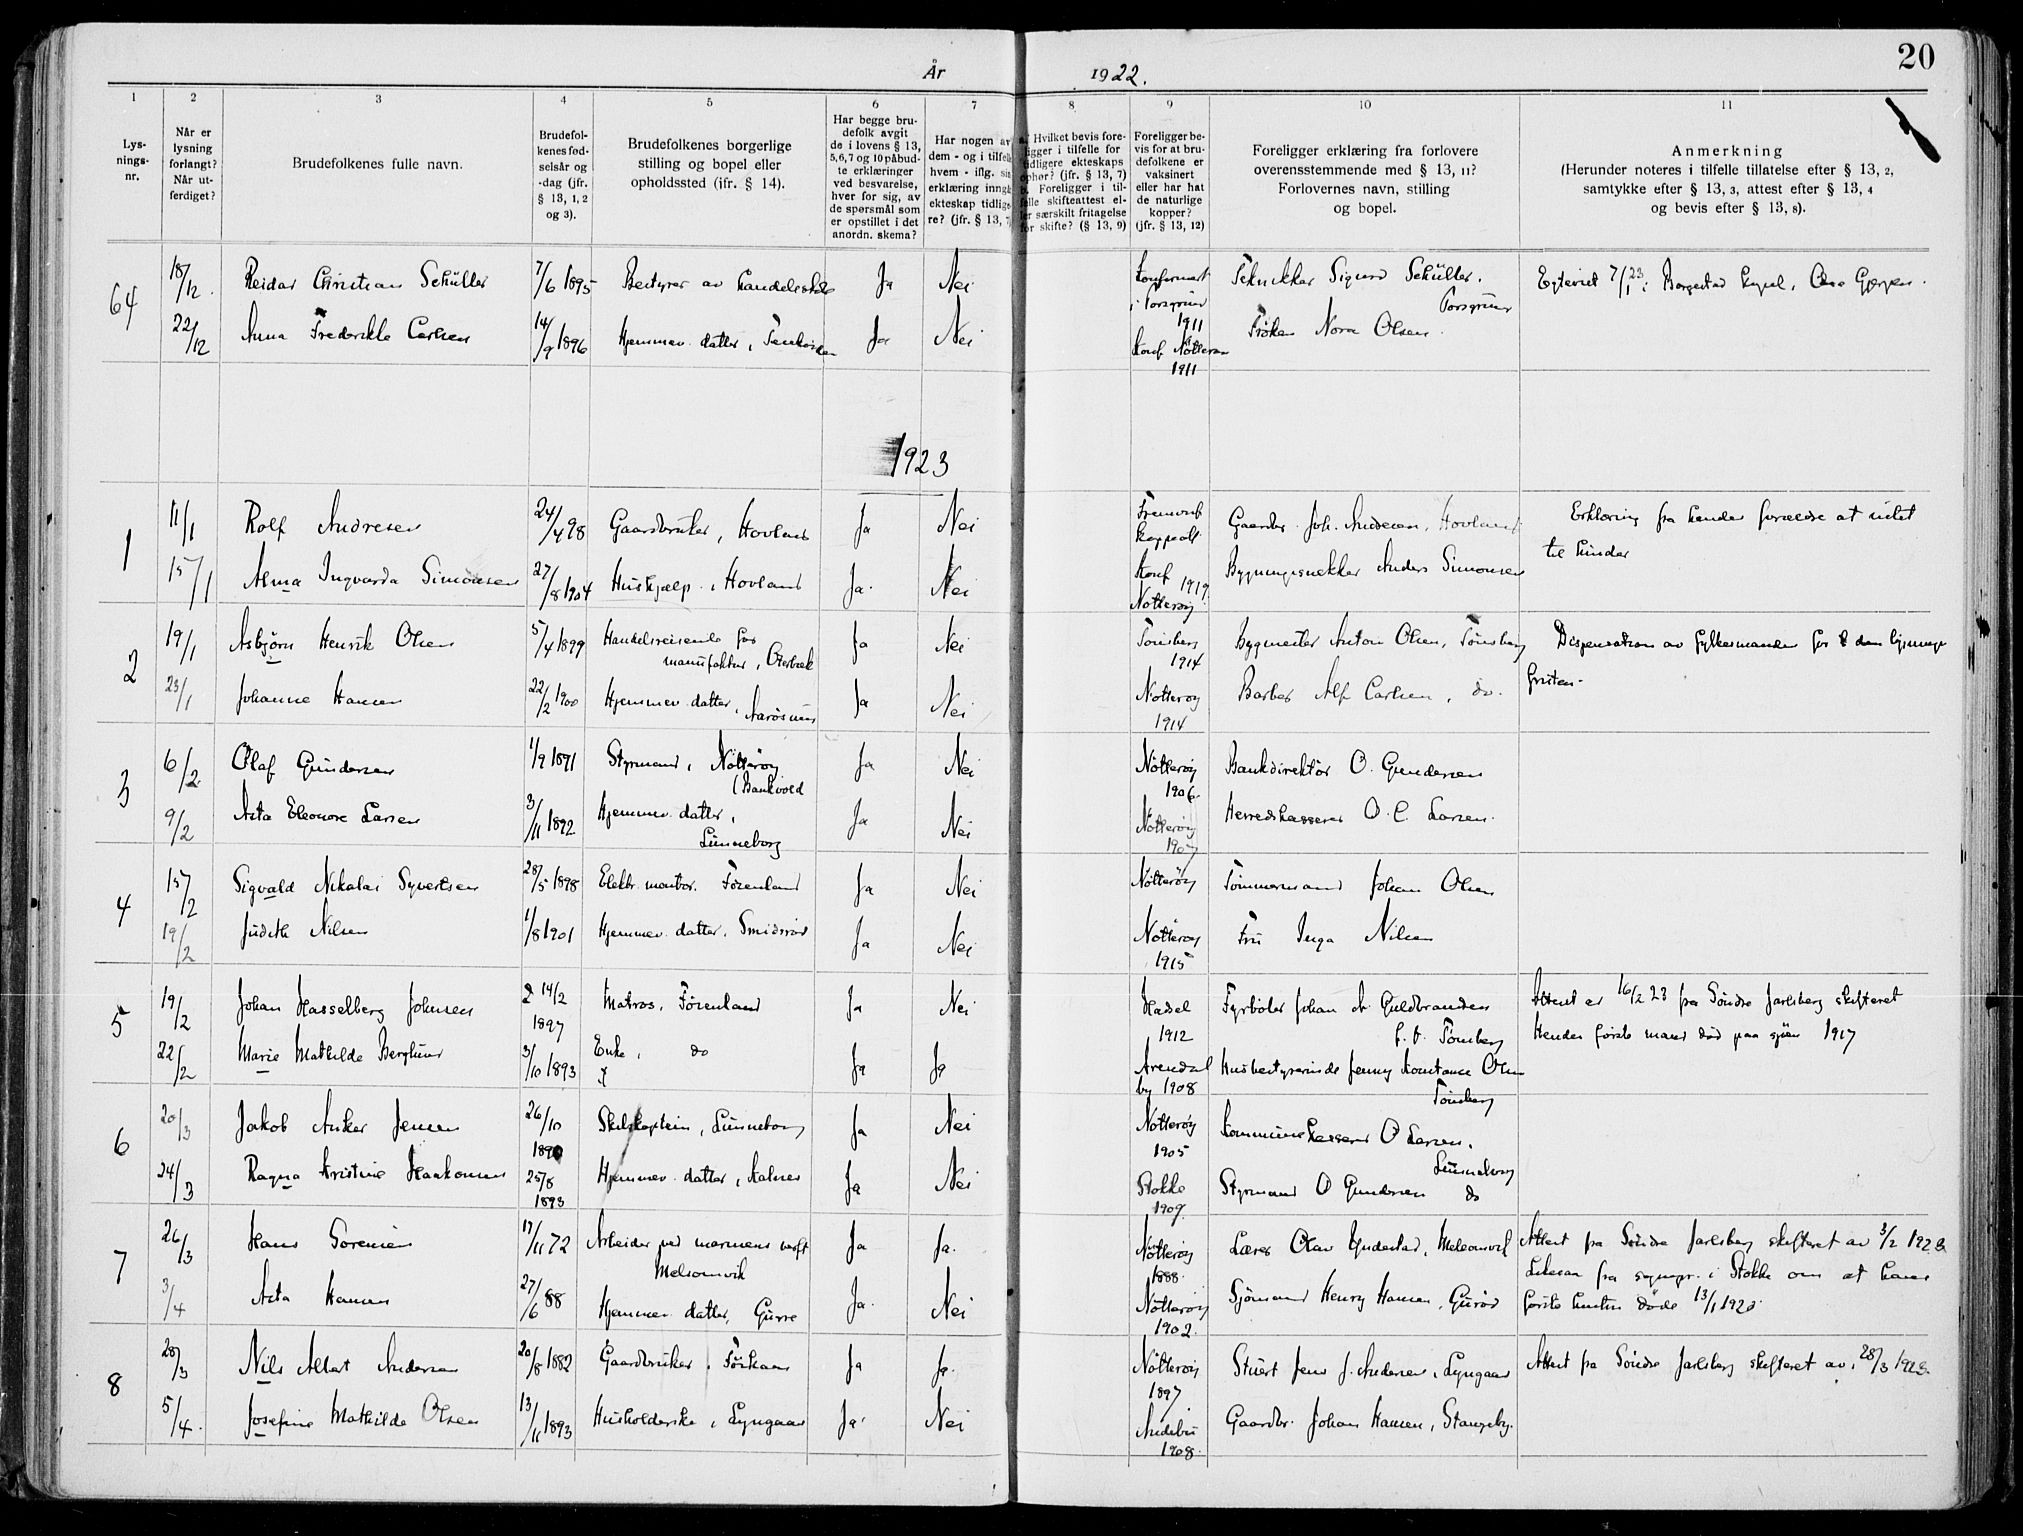 20
År 1922.
1 2 3 4 5 6 7 8 9 10 11
Lys-
nings-
nr.
Når er
lysning
forlangt?
Når ut-
ferdiget?
Brudefolkenes fulle navn.
Brudefol-
kenes fød-
selsår og
-dag (jfr.
§ 13, 1, 2
og 3).
Brudefolkenes borgerlige
stilling og bopel eller
opholdssted (jfr. § 14).
Har begge bru-
defolk avgit
de i lovens § 13,
5,6,7 og 10 påbud-
te erklæringer
ved besvarelse,
hver for sig, av
de spørsmål som
er opstillet i det
anordn. skema?
Har nogen av
dem - og i tilfelle
hvem - iflg.
erklæring inngå
ekteskap tidlig-
re? (jfr. § 13, 7)
Hvilket bevis fore-
ligger i tilfelle for
tidligere ekteskaps
ophør? (jfr. § 13, 7)
b. Foreligger i til-
felle skifteattest el-
ler særskilt fritagelse
for skifte? (§ 13, 9)
Foreligger be-
vis for at bru-
defolkene er
vaksinert
eller har hat
de naturlige
kopper?
(jfr. § 13, 12)
Foreligger erklæring fra forlovere
overensstemmende med § 13, 11?
Forlovernes navn, stilling
og bopel.
Anmerkning
(Herunder noteres i tilfelle tillatelse efter § 13, 2,
samtykke efter § 13, 3, attest efter § 13, 4
og bevis efter § 13, 8).
64 18/12. Reidar Christian Schüller 7/6 1895 Bestyrer av Ja Nei Konfirmert i Porsgrunn 1911 Sigurd Schüller, Porsgrunn 7/1 23 i Borgestad
22/12 Anna Fredrikke Carlsen 14/9 1896 Hjemmev. datter, Ja Nei Konf. Nøtterøy 1911 Frøken Nora Olsen.
1923
1 11/1 Rolf Andresen 24/4 98 Gaardbruker, Hovland Ja Nei Fremvist koppeatt. Gaardbr. Joh. Andresen, Hovland Erklæring fra hendes forældre at intet
til hinder
15/1 Alma Ingvarda Simonsen 27/8 1904 Hushjælp, Hovland Ja. Nei Konf 1919 Nøtterøy. Bygningssnekker Anders Simonsen
2 19/1 Asbjørn Henrik Olsen 5/4 1899 Handelsreisende for manufaktur, Ja Nei Tønsberg 1914 Bygmester Anton Olsen, Tønsberg Dispensation av fylkesmanden for den lysnings
fristen.
23/1 Johanne Hansen 22/2 1900 Hjemmev. datter, Aarøsund Ja Nei Nøtterøy 1914 Barber Alf Carlsen, do.
3 6/2 Olaf Gundersen 1/9 1891 Styrmand, Nøtterøy (Bankvold Ja Nei Nøtterøy 1906 Bankdirektør O. Gundersen
9/2 Asta Eleonore Larsen 3/11 1892 Hjemmev. datter, Lunneborg Ja Nei Nøtterøy 1907 Herredskasserer O. C. Larsen.
4 15/2 Sigvald Nikolai Syvertsen 28/5 1898 Elektr. montør. Førenland Ja Nei Nøtterøy Tømmermand Johan Olsen
19/2 Judith Nilsen 1/8 1901 Hjemmev. datter, Smidsrød Ja Nei Nøtterøy 1915 Fru Inga Nilsen
5 19/2 Johan Hasselberg Johnsen 14/2 1897 Matros, Førenland Ja Nei Hadsel 1912 Fyrbøter Johan A Guldbrandsen f. t. Tønsberg Attest av 16/2 23 fra Søndre Jarlsberg skifteret
Hendes første mand død paa sjøen 1917
22/2 Marie Mathilde Berglund 3/10 1893 Enke, do Ja Ja Arendal by 1908 Husbestyrerinde Jenny Konstance Olsen Tønsberg
6 20/3 Jakob Anker Jensen 26/10 1890 Skibskaptein, Lunneborg Ja Nei Nøtterøy 1905 Kommunekasserer O Larsen, Lunneborg
24/3 Ragna Kristine Haakonsen 25/8 1893 Hjemmev. datter, Kalnes Ja Nei Stokke 1909 Styrmand O Gundersen do
7 26/3 Hans Sørensen 17/11 72 Arbeider ved marinens verft Melsomvik Ja Ja. Nøtterøy 1888. Lærer Olav Melsomvik Attest fra Søndre Jarlsberg skifteret av 3/2 1923.
fra sognepr. i Stokke om at hans
første hustru døde 13/1 1920.
3/4 Asta Hansen 27/6 88 Hjemmev. datter, Ja. Nei Nøtterøy 1902. Sjømand Henry Hansen,
8 28/3 Nils Albert Andersen 20/8 1882 Gaardbruker, Ja Ja. Nøtterøy 1897 Stuert Jens J. Andersen, Lyngaas Attest fra Søndre Jarlsberg skifteret av 28/3 1923.
5/4. Josefine Mathilde Olsen 13/11 1893 Husholderske, Lyngaas Ja Nei Andebu 1908. Gaardbr. Johan Hansen, Stangeby.